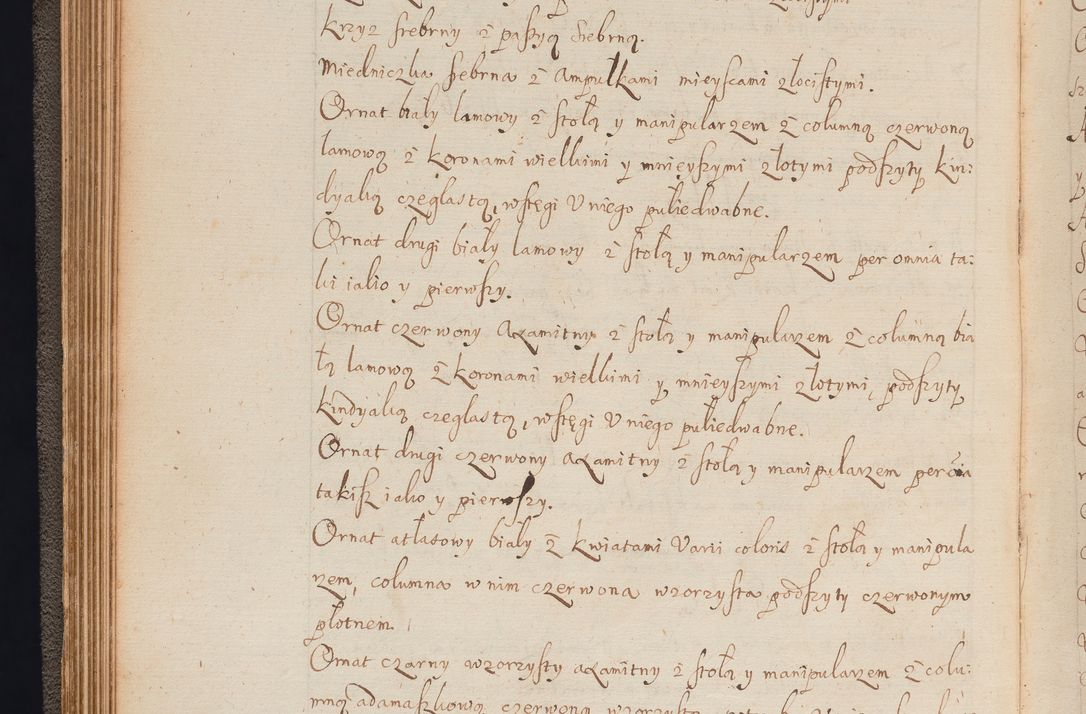 krzyz srebrny z paszyą srebrną.
Miedniczka srebrna z ampułkami mieyscami złocistymi.
Ornat biały lamowy z stołą y manipularzem z columną czerwoną
lamową z koronami wielkimi y mnieyszymi złotymi podszyty kin:
dyaką czeglastą, wstęgi u niego pułiedwabne.
Ornat drugi biały lamowy z stołą y manipularzem per omnia ta:
ki iako y pierwszy.
Ornat czerwony axamitny z stołą y manipularzem z columną bia
łą lamową z koronami wielkimi y mnieyszymi złotymi, podszyty
kindyaką czeglastą, wstęgi u niego pułiedwabne.
Ornat drugi czerwony axamitny z stołą y manipularzem per oia
takisz iako y pierwszy.
Ornat atłasowy biały z kwiatami varii coloris z stołą y manipula
rzem, columna w nim czerwona wzorzysta podszyty czerwonym
płotnem.
Ornat czarny wzorzysty axamitny z stołą y manipularzem z colu:
mną adamaszkową czerwoną